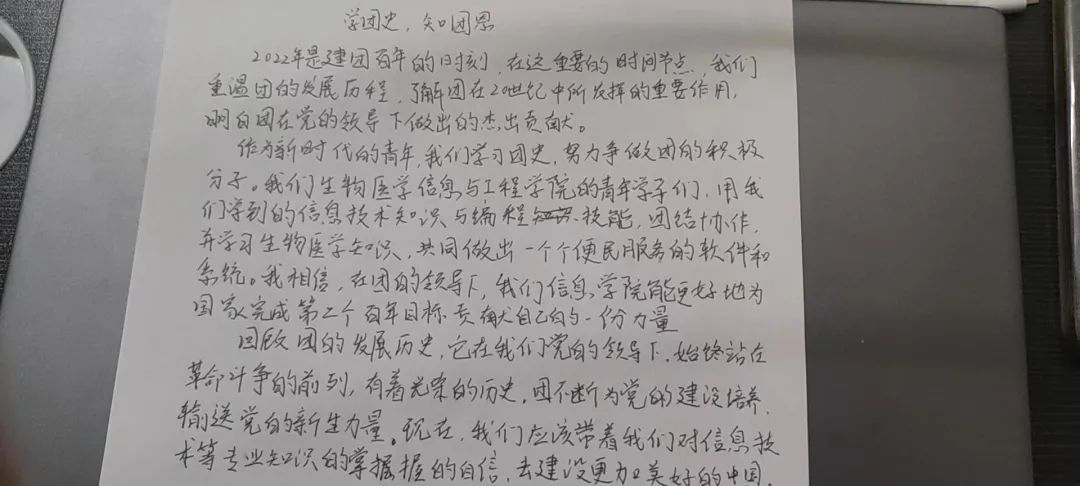 学团史，知团恩
2022年是建团百年的时刻，在这重要的时间节点，我们
重温团的发展历程，了解团在20世纪中所发挥的重要作用，
明白团在党的领导下做出的杰出贡献。
作为新时代的青年，我们学习团史，努力争做团的积极
分子。我们生物医学信息与工程学院的青年学子们，用我
们学到的信息技术知识与编程技能，团结协作，
并学习生物医学知识，共同做出一个个便民服务的软件和
系统。我相信，在团的领导下，我们信息学院能更好地为
国家完成第二个百年目标贡献自己的一份力量
回顾团的发展历史，它在我们党的领导下，始终站在
革命斗争的前列，有着光荣的历史，团不断为党的建设培养、
输送党的新生力量。现在，我们应该带着我们对信息技
术等专业知识的掌握握的自信，去建设更加美好的中国。